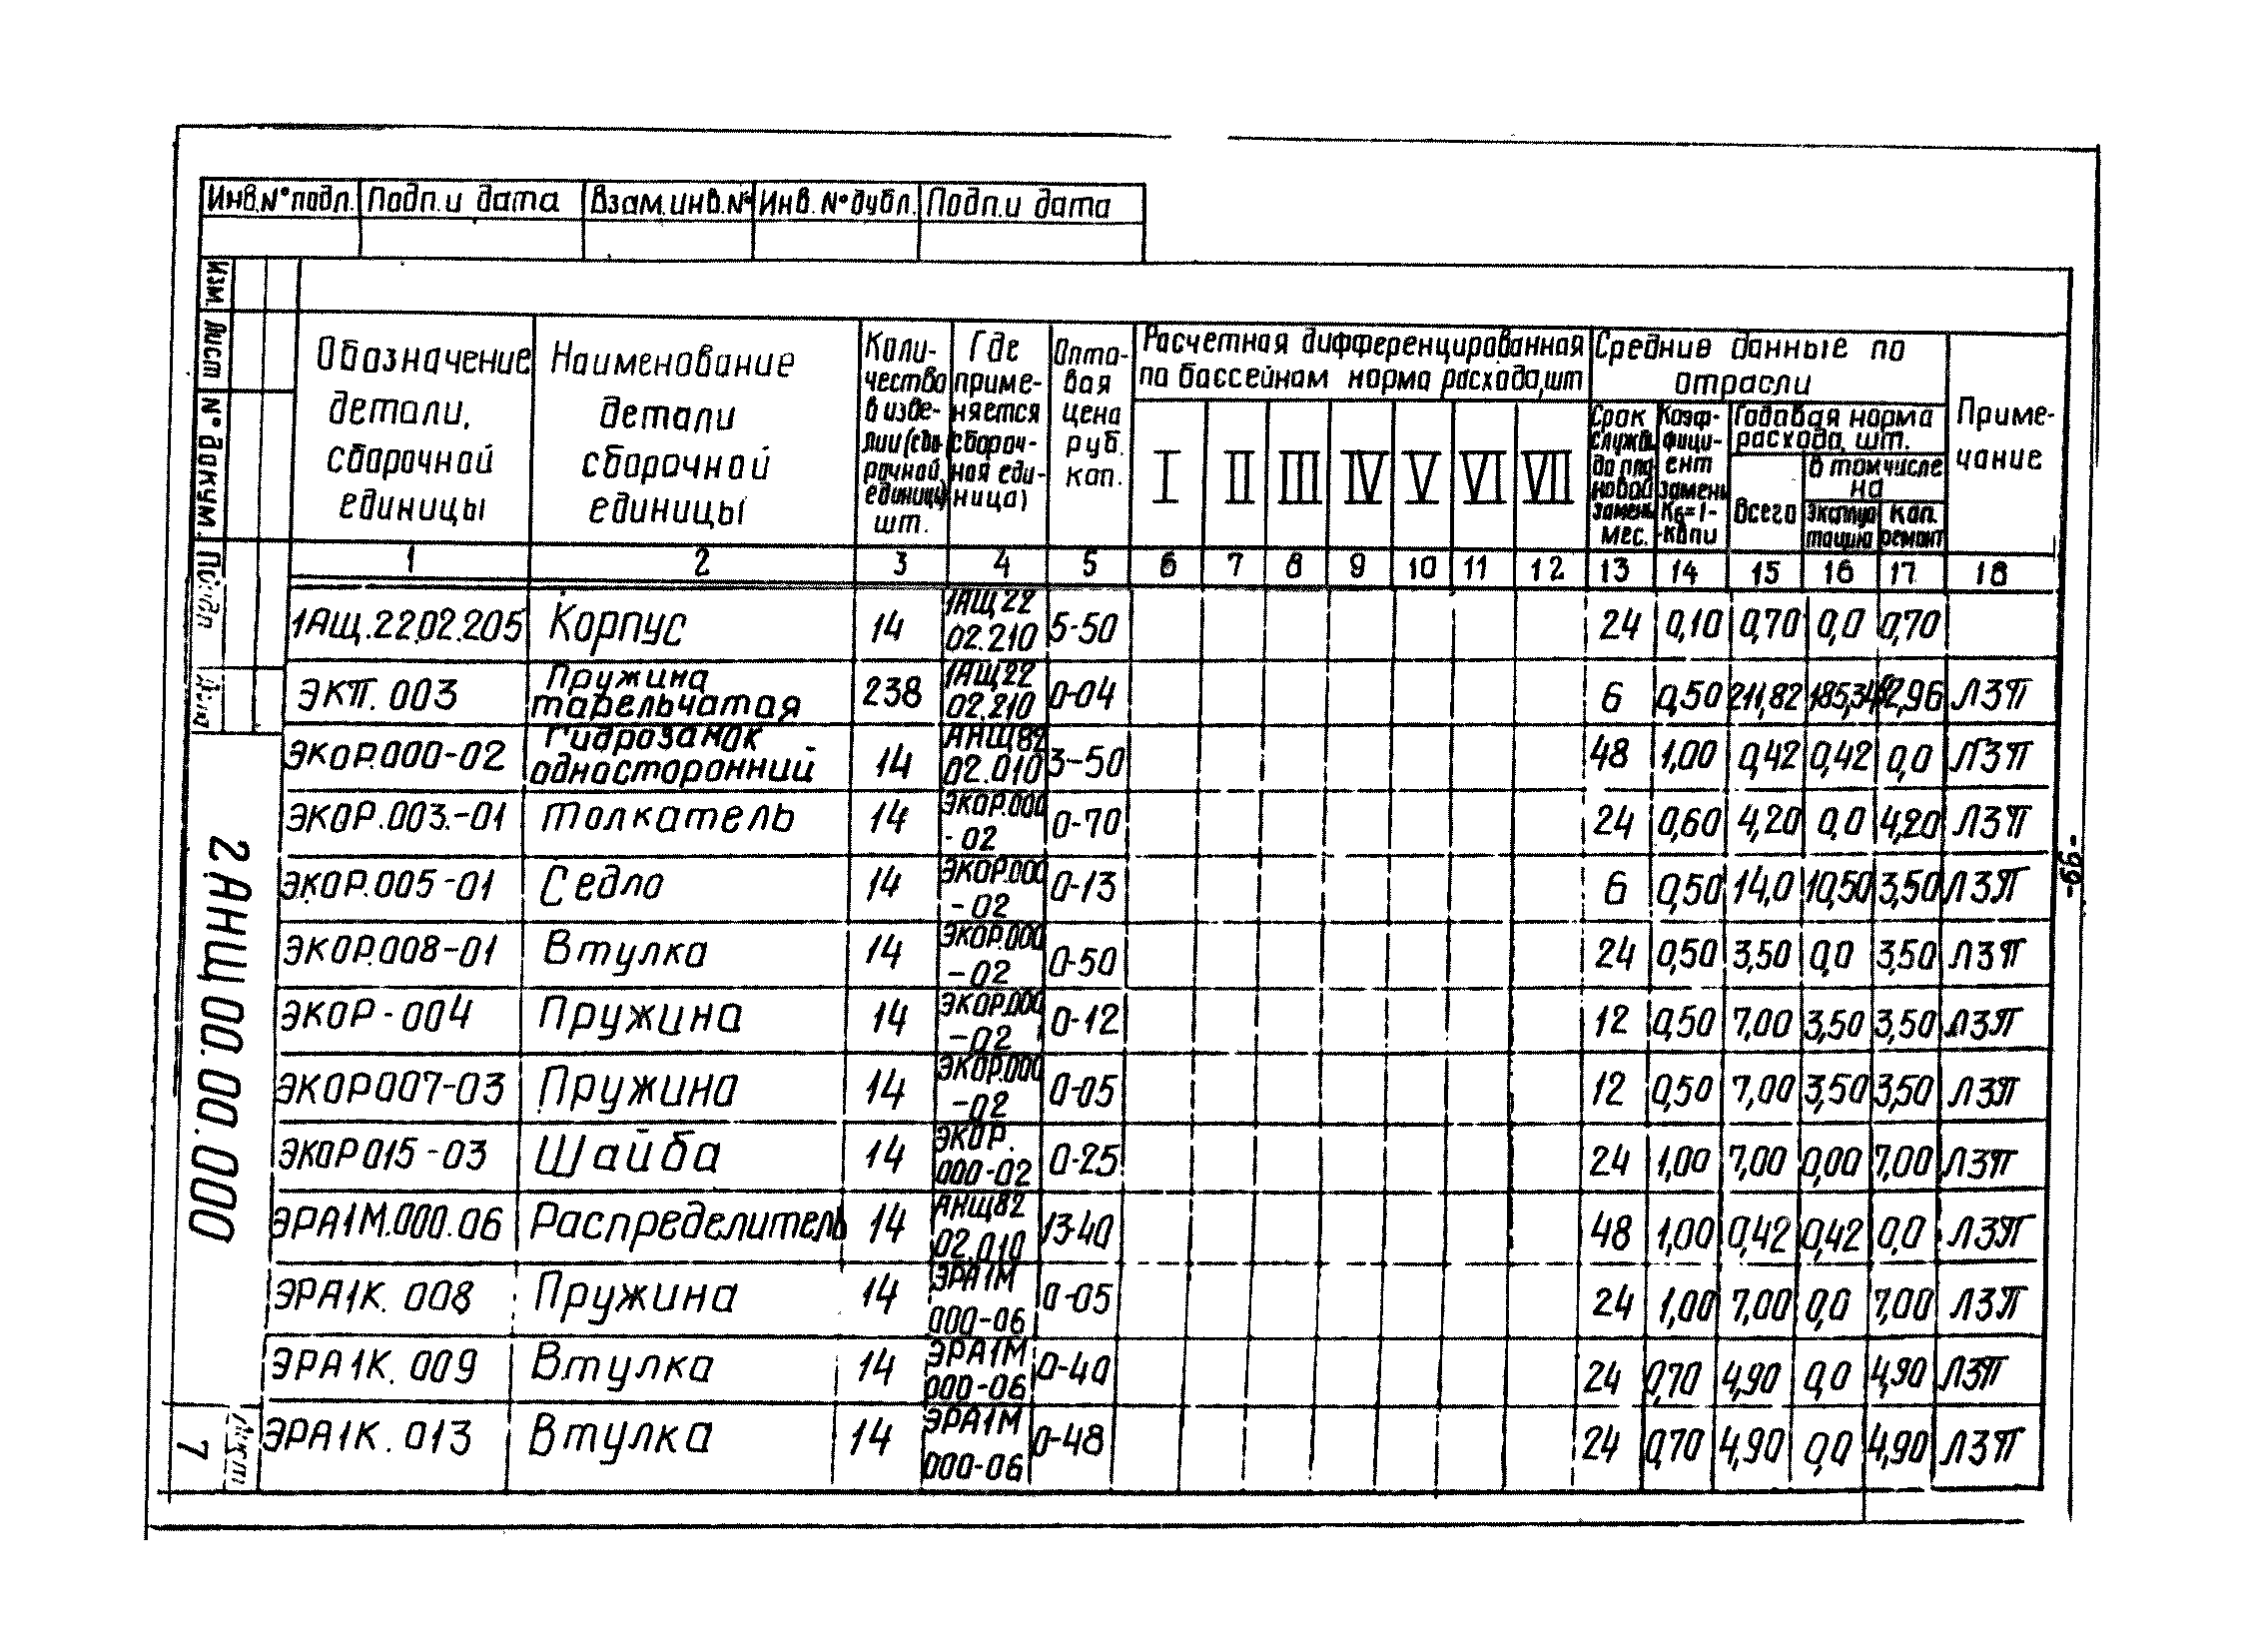 Инв.№ подл. Подп.и дата Взам.инв.№ Инв.№ дубл. Подп.и дата
Обозначение детали, сборочной единицы
Наименование детали сборочной единицы
Количество в изделии (сборочной единицы) шт.
Где применяется (сборочная единица)
Оптовая цена руб. коп.
Расчетная дифференцированная
по бассейнам норма расхода, шт
I II III IV V VI VII
Средние данные по
отрасли
Срок службы до плановой замены мес.
Коэффициент замены Кб=1-Квпи
Годовая норма
расхода, шт.
Всего
в том числе
на
эксплуатацию
кап. ремонт
Примечание
1 2 3 4 5 6 7 8 9 10 11 12 13 14 15 16 17 18
1АЩ.22.02.205 Корпус 14 1АЩ22 02.210 5-50 24 0,10 0,70 0,0 0,70
ЭКП.003 Пружина тарельчатая 238 1АЩ22 02.210 0-04 6 0,50 211,82 ЛЗП
ЭКОР.000-02 Гидрозамок односторонний 14 АНЩ82 02.010 3-50 48 1,00 0,42 0,42 0,0 ЛЗП
ЭКОР.003.-01 Толкатель 14 ЭКОР.000 -02 0-70 24 0,60 4,20 0,0 4,20 ЛЗП
ЭКОР.005-01 Седло 14 ЭКОР.000 -02 0-13 6 0,50 14,0 10,50 3,50 ЛЗП
ЭКОР.008-01 Втулка 14 ЭКОР.000 -02 0-50 24 0,50 3,50 0,0 3,50 ЛЗП
ЭКОР-004 Пружина 14 ЭКОР.000 -02 0-12 12 0,50 7,00 3,50 3,50 ЛЗП
ЭКОР007-03 Пружина 14 ЭКОР.000 -02 0-05 12 0,50 7,00 3,50 3,50 ЛЗП
ЭКОР015-03 Шайба 14 ЭКОР. 000-02 0-25 24 1,00 7,00 0,00 7,00 ЛЗП
ЭРА1М.000.06 Распределитель 14 АНЩ82 02.010 13-40 48 1,00 0,42 0,42 0,0 ЛЗП
ЭРА1К.008 Пружина 14 ЭРА1М 000-06 0-05 24 1,00 7,00 0,0 7,00 ЛЗП
ЭРА1К.009 Втулка 14 ЭРА1М 000-06 0-40 24 0,70 4,90 0,0 4,90 ЛЗП
ЭРА1К.013 Втулка 14 ЭРА1М 000-06 0-48 24 0,70 4,90 0,0 4,90 ЛЗП
Изм. Лист № докум.
2АНЩ00.00.000
Лист
7
-69-